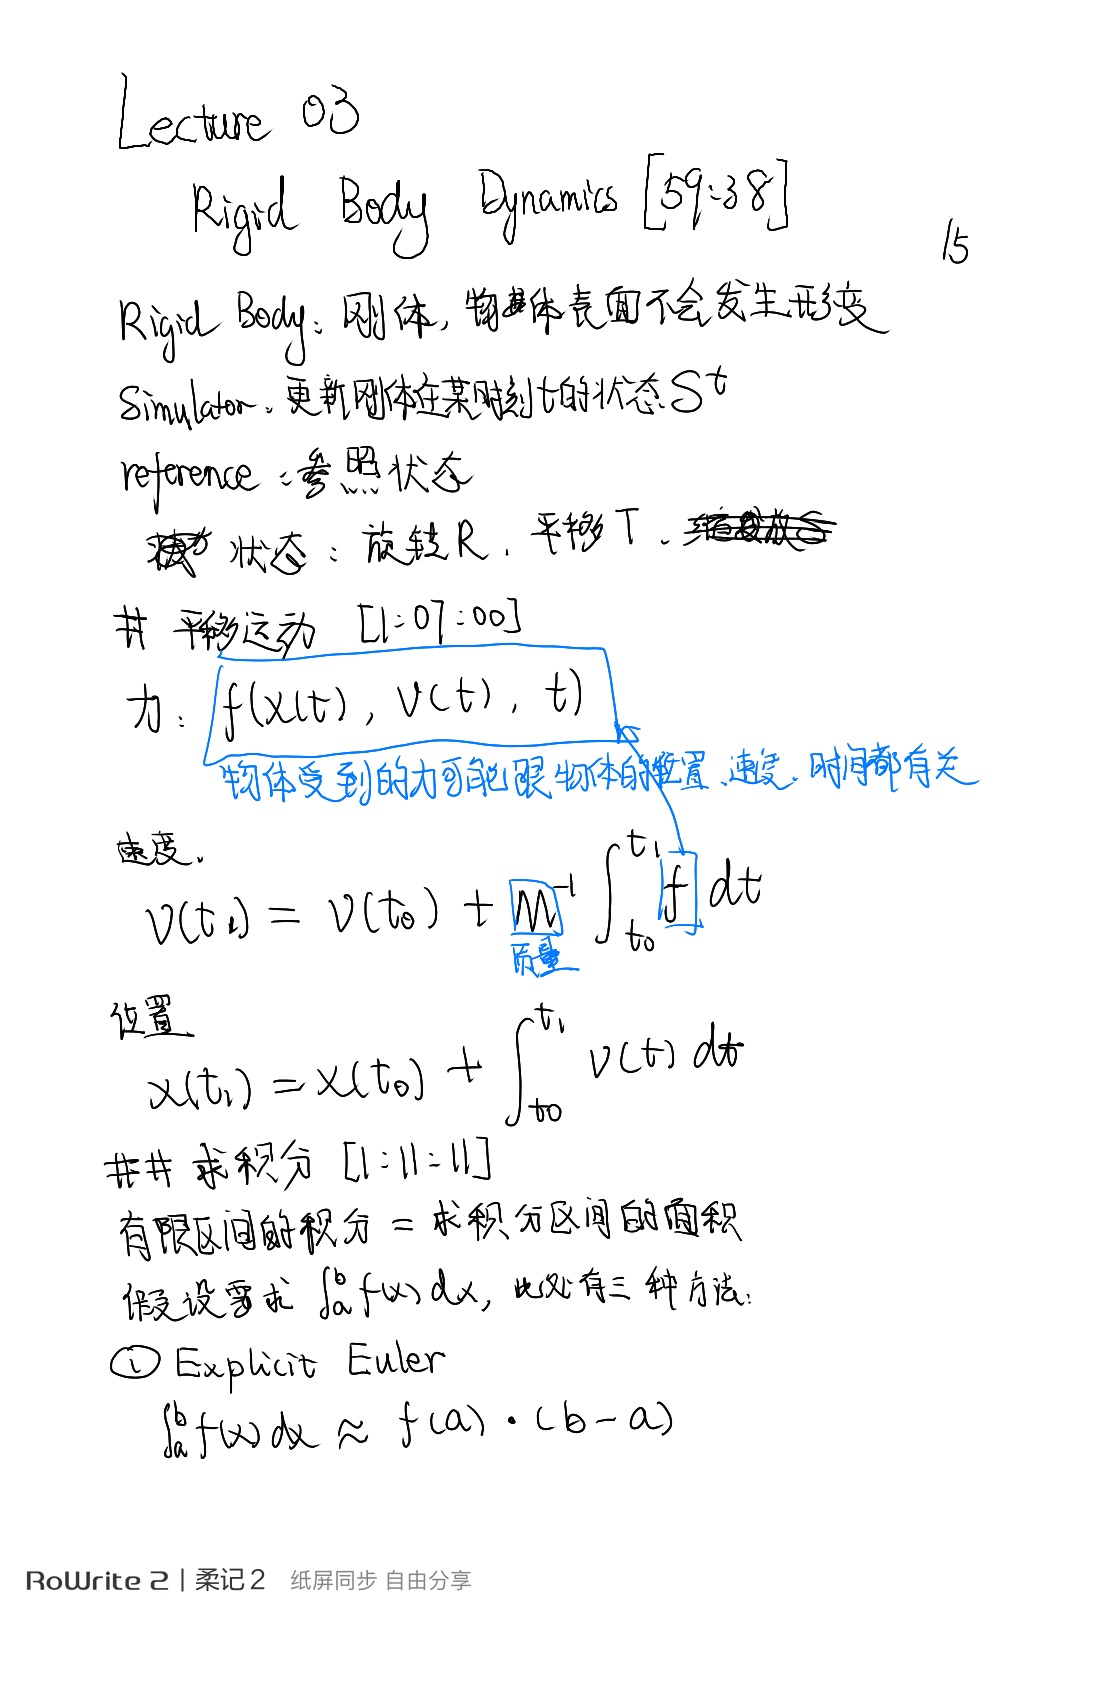 Lecture 03
Rigid Body Dynamics [59:38]
15
Rigid Body: 刚体, 物体表面不会发生形变
Simulator: 更新刚体在某时刻t的状态 S^t
reference: 参照状态
状态: 旋转R、平移T、
# 平移运动 [1:07:00]
力: f(x(t), v(t), t)
物体受到的力可能跟物体的位置、速度、时间都有关
速度:
v(t₁) = v(t₀) + M⁻¹ ∫_{t₀}^{t₁} f dt
质量
位置
x(t₁) = x(t₀) + ∫_{t₀}^{t₁} v(t) dt
## 求积分 [1:11:11]
有限区间的积分 = 求积分区间的面积
假设需求 ∫_a^b f(x) dx, 此处有三种方法:
① Explicit Euler
∫_a^b f(x) dx ≈ f(a) · (b - a)
RoWrite 2 | 柔记 2 纸屏同步 自由分享